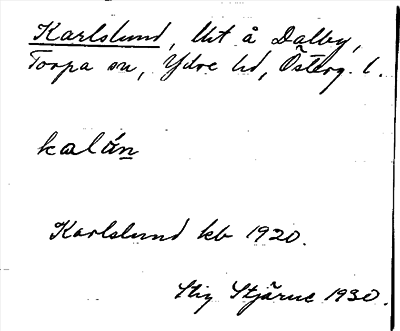 Karlslund, lht å Dalby,
Torpa sn, Ydre hd, Österg. l.
kalán
Karlslund kb 1920.
Stig Stjärne 1930.